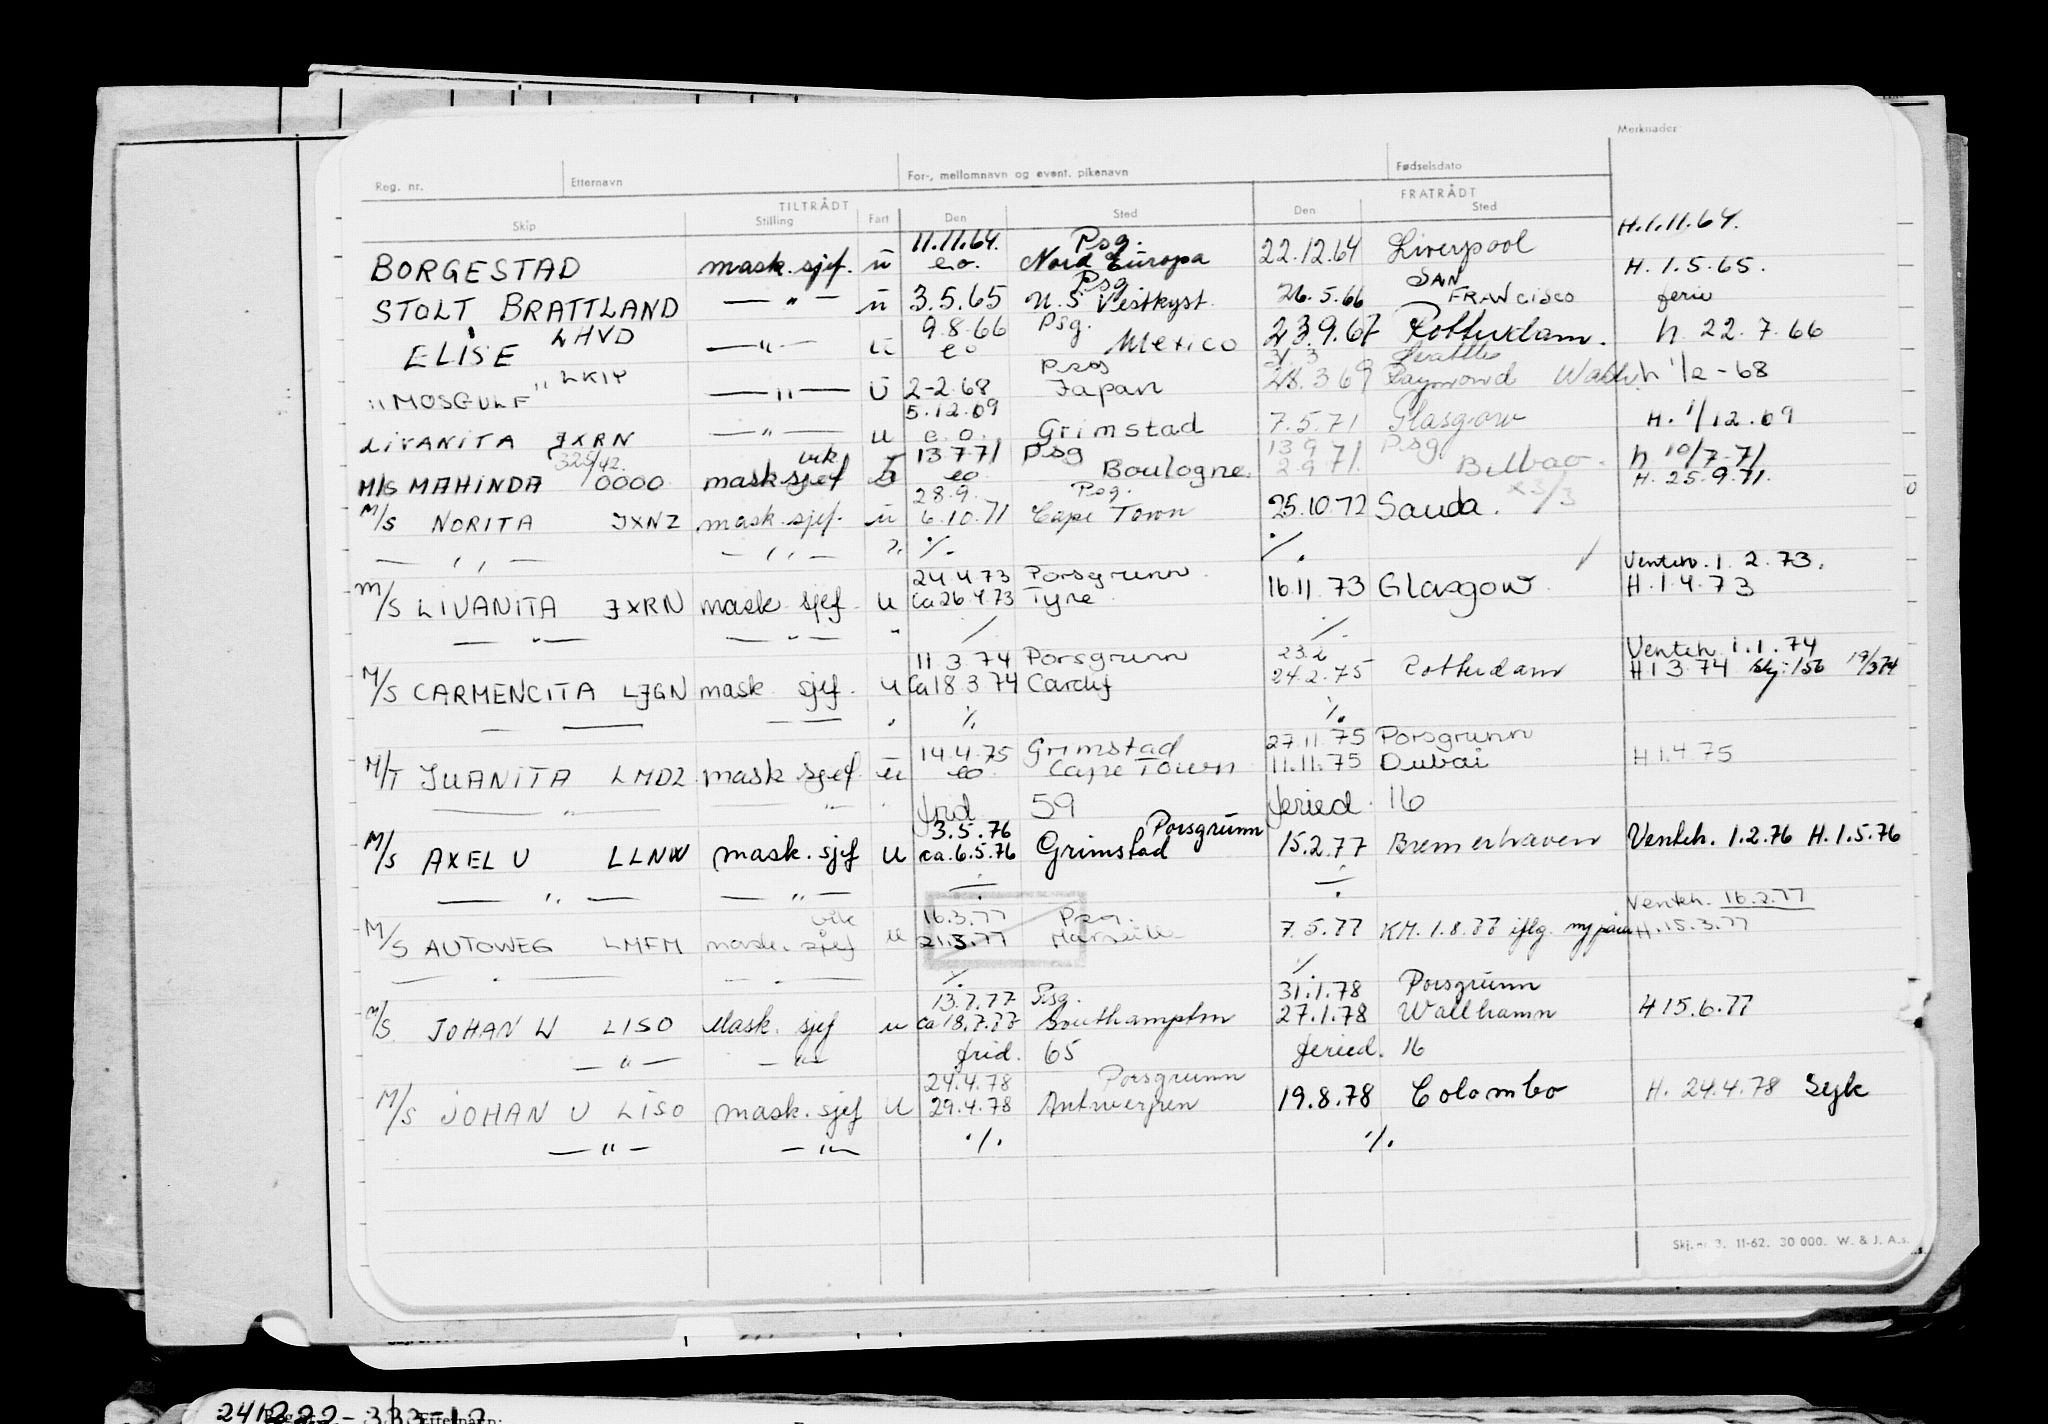 Merknader:
Reg. nr. Etternavn For-, mellomnavn og event. pikenavn Fødselsdato
TILTRÅDT FRATRÅDT
Skip Stilling Fart Den Sted Den Sted
11.11.64. Psg. H.1.11.64.
BORGESTAD mask. sjef. ü e.o. Nord Europa 22.12.64 Liverpool
Psg SAN H. 1.5.65.
STOLT BRATTLAND — " — ü 3.5.65 U.S Vestkyst. 26.5.66 FRANCISCO ferie
LHVD 9.8.66 Psg.
ELISE — " — ü eo Mexico 23.9.67 Rotterdam. h. 22.7.66
" LKIP Psg 31.3 Seattle
"MOSGULF" — " — Ü 2-2.68 Japan 28.3 69 Raymond h 1/2-68
5.12.69
LIVANITA JXRN — " — u e.o. Grimstad 7.5.71 Glasgow H. 1/12.69
325/42. vik 13771 Psg 13971 Psg h 10/7-71
M/S MAHINDA 0000 mask sjef eo Boulogne. 2971. Bilbao. H. 25.9.71.
28.9. Psg. x3/3
M/S NORITA JXNZ mask. sjef. ü 6.10.71 Cape Town 25.10.72 Sauda.
— , , — — , , — ". ./. ./.
24.4.73 Porsgrunn. Venteh. 1.2.73.
M/S LIVANITA JXRN mask. sjef. u ca 26.4.73 Tyne. 16.11.73 Glasgow. H.1.4.73
— " — — " — " / ./.
11.3.74 Porsgrunn 23.2 Venteh. 1.1.74
M/S CARMENCITA LJGN mask. sjef. u Ca 18 3 74 Cardif 24.2.75 Rotterdam H 1 3 74 Skj: 156 19/374
— —— — — , ./. ./.
14.4.75 Grimstad 27.11.75 Porsgrunn
M/T JUANITA LMDZ mask sjef. ü eo Cape Town 11.11.75 Dubai H 1.4.75
— " — — " — frid 59 feried. 16
3.5.76 Porsgrunn
M/S AXEL U LLNW mask. sjef u ca.6.5.76 Grimstad 15.2.77 Bremerhaven Venteh. 1.2.76 H.1.5.76
— ". — — " — ./. ./.
vik 16.3.77 Psg. Venteh. 16.2.77
M/S AUTOWEG LMFM mask. sjef u 21.3.77 Marseille 7.5.77 KM. 1.8.77 iflg. H.15.3.77
— . — — . — ./. ./.
13.7.77 Psg. 31.1.78 Porsgrunn
M/S. JOHAN U LISO Mask. sjef u ca 18.7.77 Southampton 27.1.78 Wallhamn H 15.6.77
— " — — " — frid. 65 feried. 16
24.4.78 Porsgrunn
M/S JOHAN U LISO mask. sjef u 29.4.78 Antwerpen 19.8.78 Colombo H. 24.4.78 Syk
— " — — " — ./. ./.
Skj. nr. 3. 11-62. 30 000. W. & J. A.s.
Etternavn: